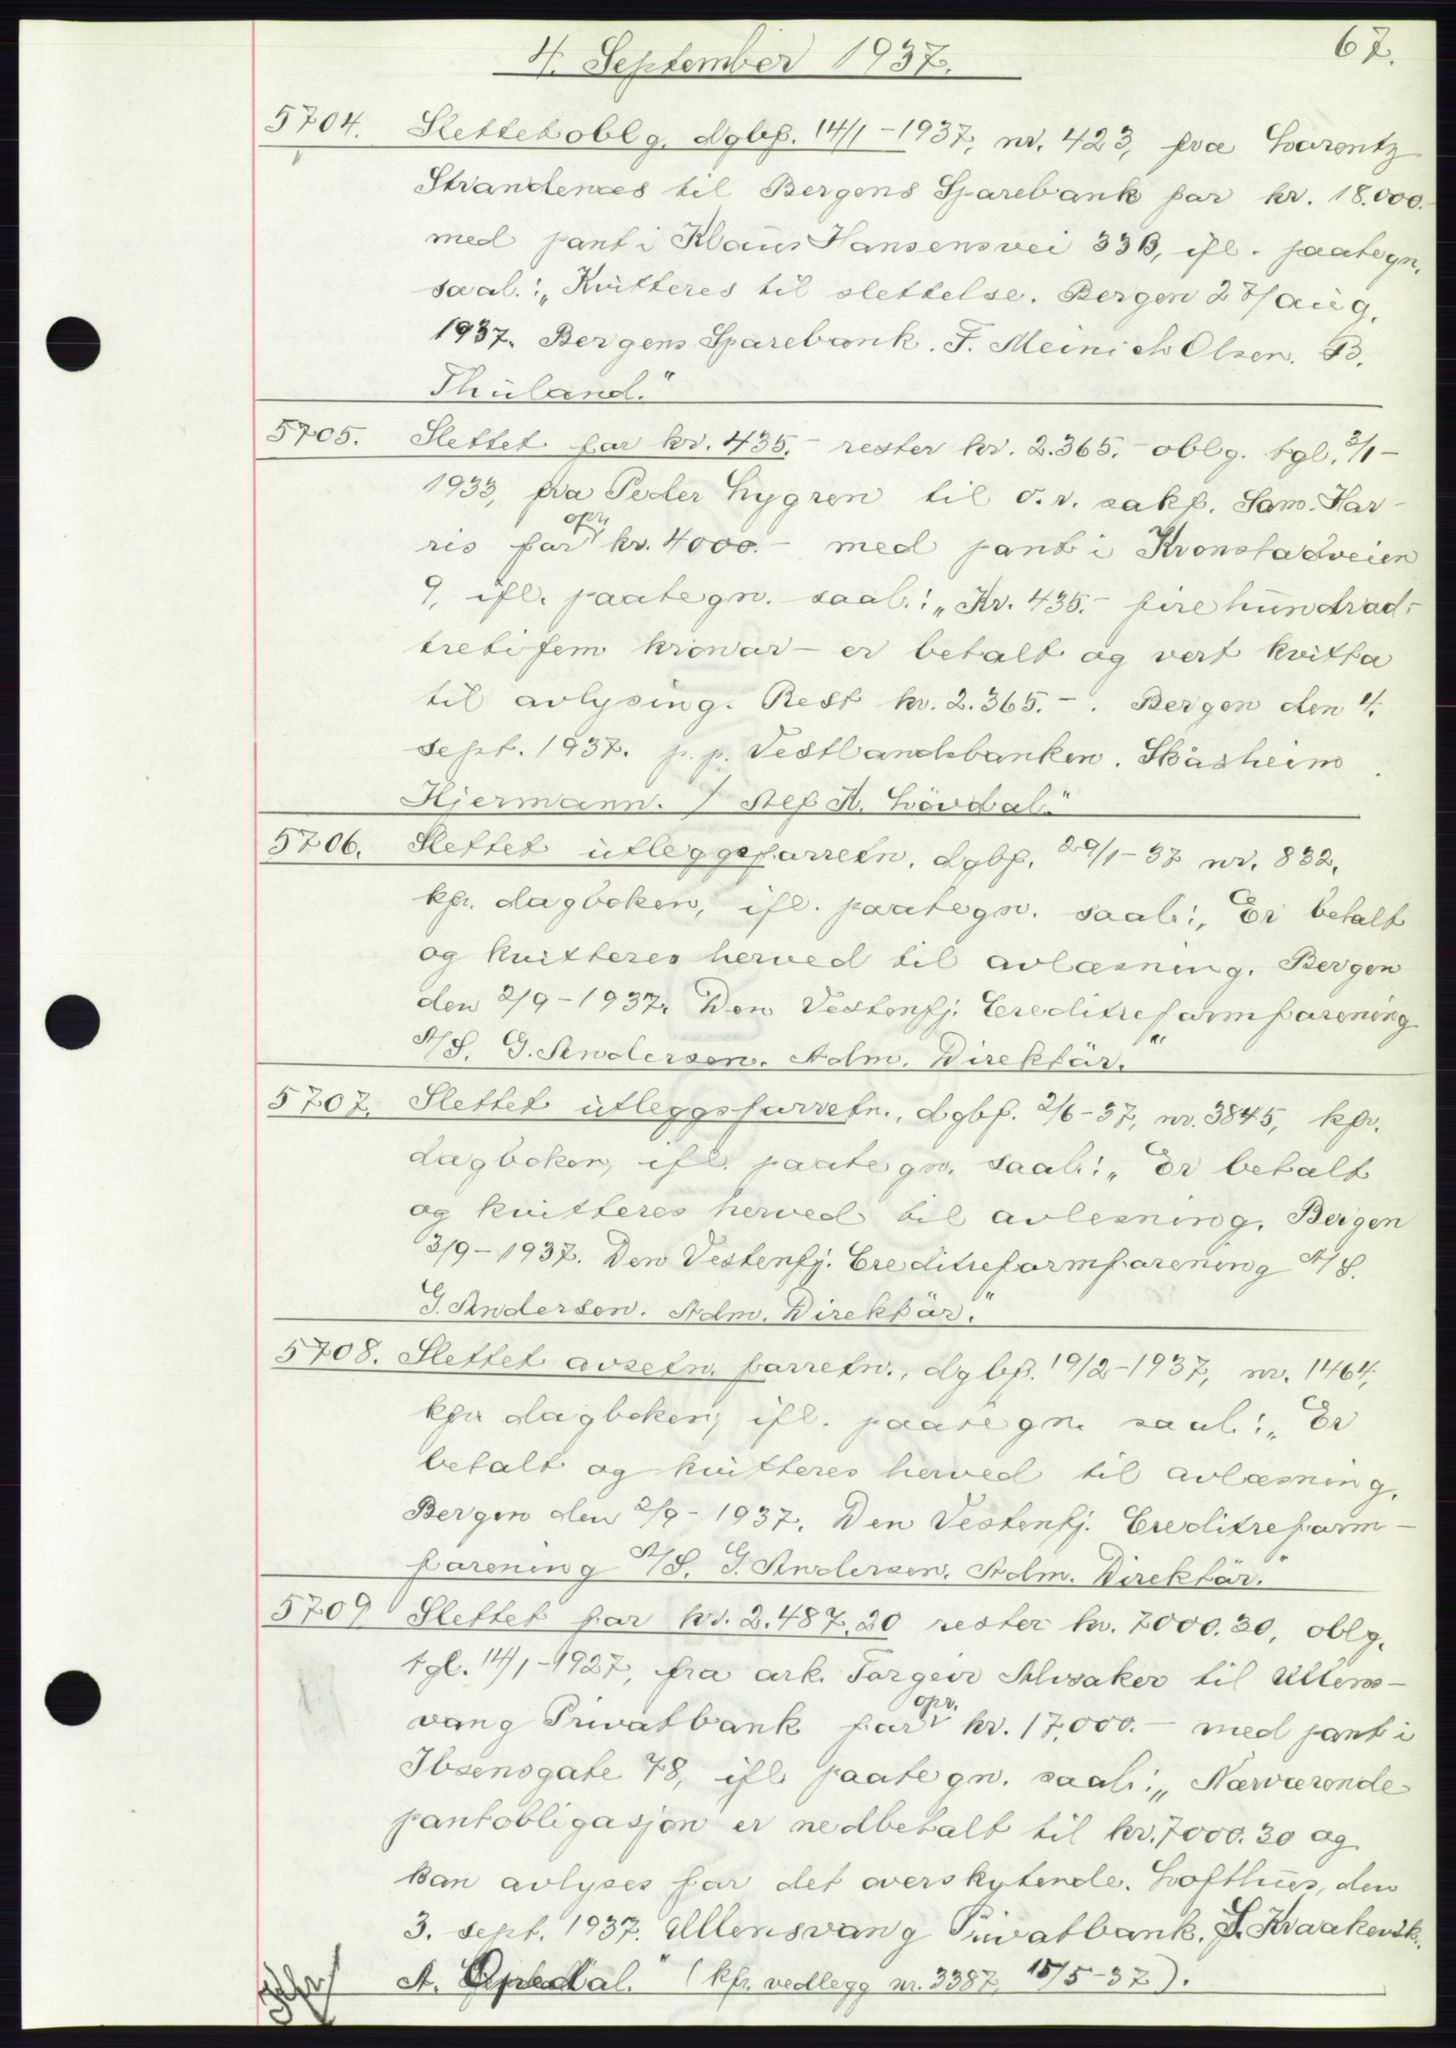 4. September 1937.
67.
5704. Slettet oblg. dgbf. 14/1-1937, nr. 423, fra Larentz
Strandenæs til Bergens Sparebank for kr. 18.000.-
med pant i Klaus Hansensvei 33B, ifl. paategn.
saal.: „Kvitteres til slettelse. Bergen 27/aug.
1937. Bergens Sparebank. F. Meinich Olsen. B.
Thuland."
5705. Slettet for kr. 435.- rester kr. 2.365.- oblg. tgl. 3/1-
1933, fra Peder Lygren til o.r. sakf. Sam. Har-
opr.
ris for kr. 4000.- med pant i Kronstadveien
9, ifl. paategn. saal.: „Kr. 435.- firehundrad-
tretifem kronar - er betalt og vert kvitta
til avlysing. Rest kr. 2.365.-. Bergen den 4.
sept. 1937. p. p. Vestlandsbanken. Skåsheim.
Hjermann. / Alf A. Lövdal."
5706. Slettet utleggsforretn. dgbf. 29/1-37 nr. 832,
kfr. dagboken, ifl. paategn. saal.: „Er betalt
og kvitteres herved til avlæsning. Bergen
den 2/9-1937. Den Vestenfj. Creditreformforening
A/S. G. Andersen. Adm. Direktör."
5707. Slettet utleggsforretn., dgbf. 2/6-37, nr. 3845, kfr.
dagboken, ifl. paategn. saal.: „Er betalt
og kvitteres herved til avlesning. Bergen
3/9-1937. Den Vestenfj. Creditreformforening A/S.
G. Andersen. Adm. Direktör."
5708. Slettet avsetn. forretn., dgbf. 19/2-1937, nr. 1464,
kfr dagboken, ifl. paategn. saal.: „Er
betalt og kvitteres herved til avlæsning.
Bergen den 2/9-1937. Den Vestenfj. Creditreform-
forening A/S. G. Andersen. Adm. Direktör."
5709 Slettet for kr. 2.487.20 rester kr. 7000.30, oblg.
tgl. 14/1-1927, fra ark. Torgeir Alvsaker til Ullens-
opr.
vang Privatbank for kr. 17.000.- med pant i
Ibsensgate 78, ifl. paategn. saal.: „Nærværende
pantobligasjon er nedbetalt til kr. 7000.30 og
kan avlyses for det overskytende. Lofthus, den
3. sept. 1937. Ullensvang Privatbank. S. Kraakevik.
A. Opedal." (kfr. vedlegg nr. 3387, 15/5-37).